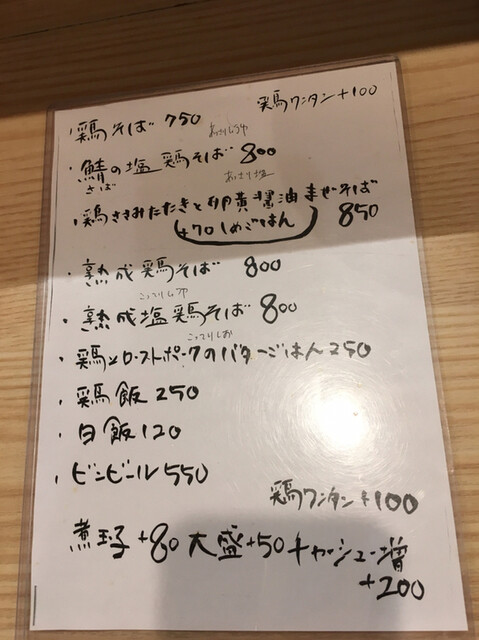 鶏ワンタン+100
・鶏そば 750
あっさりしょうゆ
・鯖の塩鶏そば 800
さば
あっさり塩
・鶏ささみたたきと卵黄醤油まぜそば 850
+70 しめごはん
・熟成鶏そば 800
こってりしょうゆ
・熟成塩鶏そば 800
こってりしお
・鶏とローストポークのバターごはん 250
・鶏飯 250
・白飯 120
・ビンビール 550
鶏ワンタン+100
煮玉子+80 大盛+50 チャーシュー増
+200